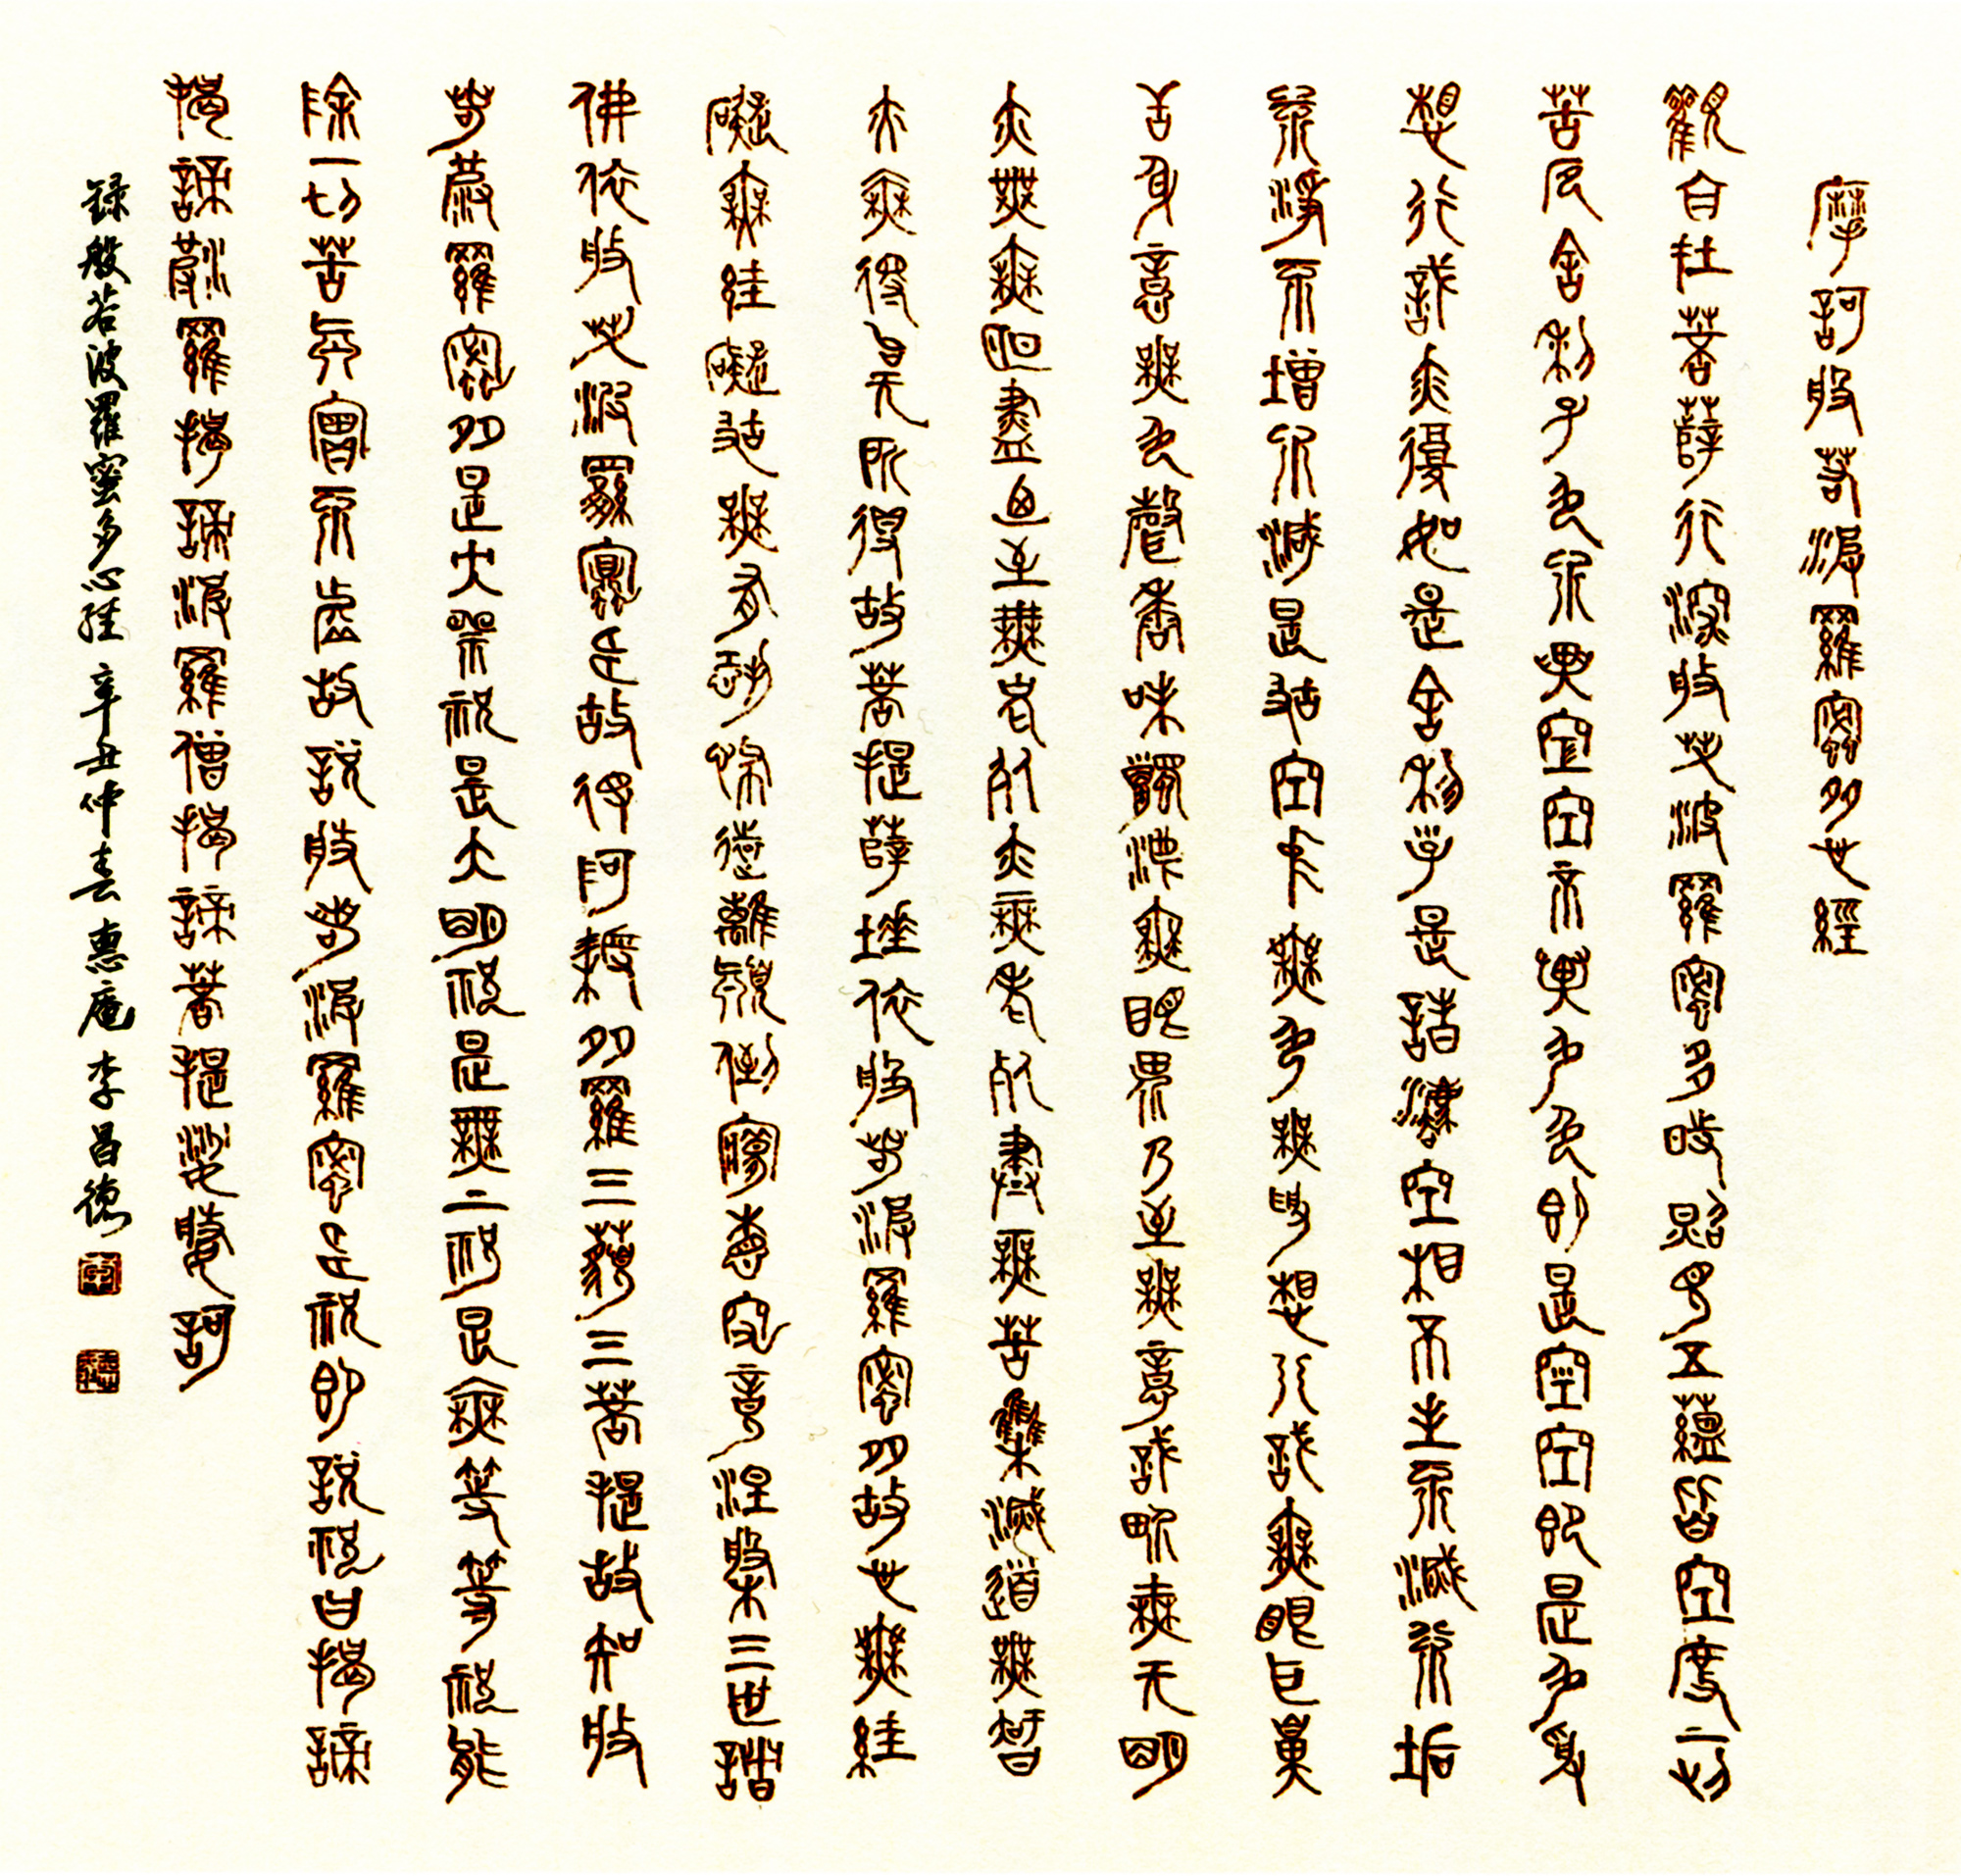 摩訶般若波羅蜜多心經
觀自在菩薩行深般若波羅蜜多時照見五蘊皆空度一切
苦厄舍利子色不異空空不異色色即是空空即是色受
想行識亦復如是舍利子是諸法空相不生不滅不垢
不淨不增不減是故空中無色無受想行識無眼耳鼻
舌身意無色聲香味觸法無眼界乃至無意識界無无明
亦無無明盡乃至無老死亦無老死盡無苦集滅道無智
亦無得以无所得故菩提薩埵依般若波羅蜜多故心無絓
礙無絓礙故無有恐怖遠離顛倒夢想究竟涅槃三世諸
佛依般若波羅蜜多故得阿耨多羅三藐三菩提故知般
若波羅蜜多是大神祝是大明祝是無上祝是無等等祝能
除一切苦真實不虛故說般若波羅蜜多祝即說祝曰揭諦
揭諦波羅揭諦波羅僧揭諦菩提娑婆訶
録般若波羅蜜多心經 辛丑仲春 惠庵 李昌德